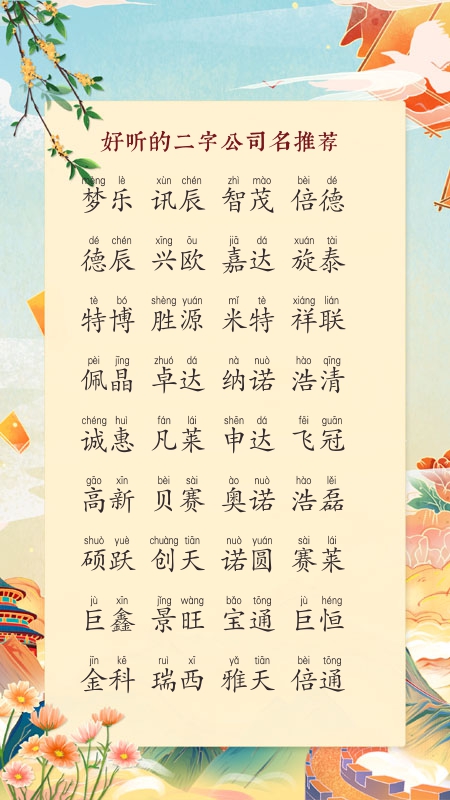 好听的二字公司名推荐
mèng lè xùn chén zhì mào bèi dé
梦乐 讯辰 智茂 倍德
dé chén xīng ōu jiā dá xuán tài
德辰 兴欧 嘉达 旋泰
tè bó shèng yuán mǐ tè xiáng lián
特博 胜源 米特 祥联
pèi jīng zhuó dá nà nuò hào qīng
佩晶 卓达 纳诺 浩清
chéng huì fán lái shēn dá fēi guān
诚惠 凡莱 申达 飞冠
gāo xīn bèi sài ào nuò hào lěi
高新 贝赛 奥诺 浩磊
shuò yuè chuàng tiān nuò yuán sài lái
硕跃 创天 诺圆 赛莱
jù xīn jǐng wàng bǎo tōng jù héng
巨鑫 景旺 宝通 巨恒
jīn kē ruì xī yǎ tiān bèi tōng
金科 瑞西 雅天 倍通